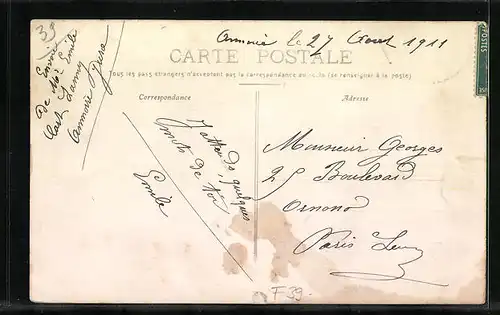 39
le 27 Août 1911
CARTE POSTALE
Tous les pays étrangers n'acceptent pas la correspondance au recto (se renseigner à la poste)
Correspondance
Adresse
POSTES
Envoie
de Mr Emile
Jura
J'attends quelques
mots de toi
Emile
Monsieur Georges
25 Boulevard
Ornano
Paris
F 39-